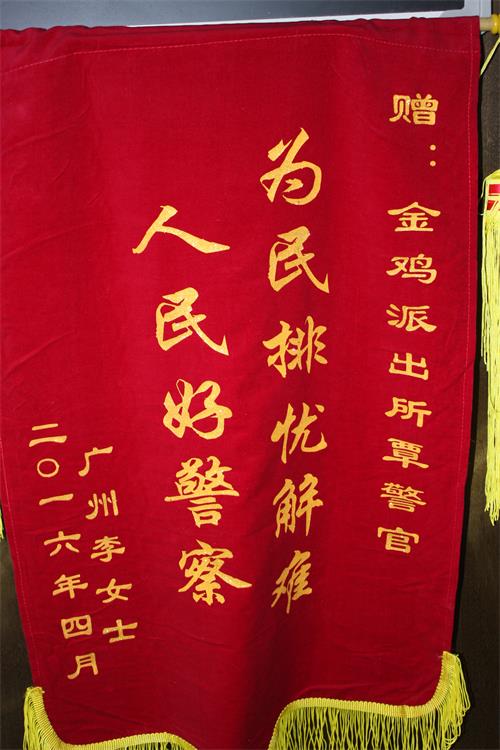 赠：金鸡派出所覃警官
为民排忧解难
人民好警察
广州李女士
二〇一六年四月